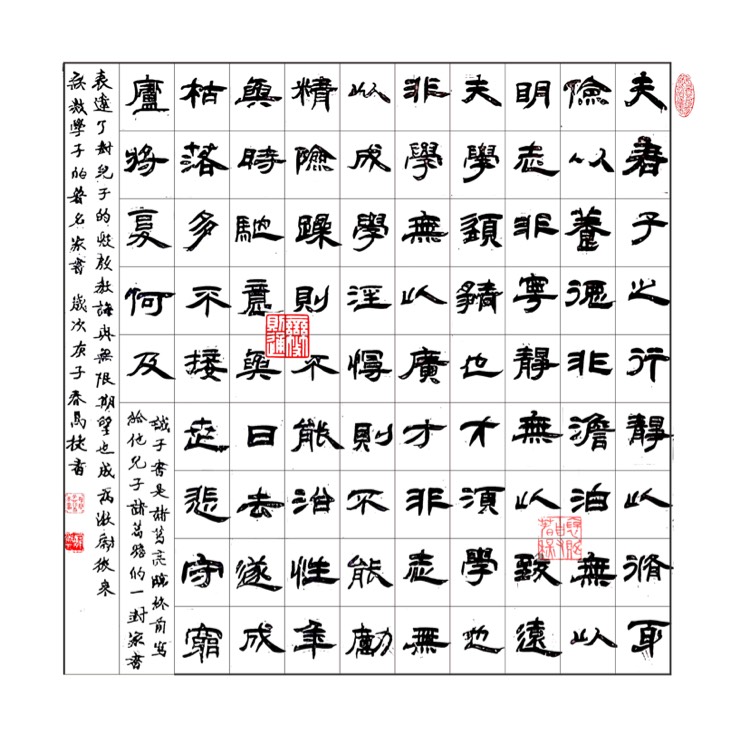 夫君子之行靜以脩身
儉以養德非澹泊無以
明志非寧靜無以致遠
夫學須靜也才須學也
非學無以廣才非志無
以成學淫慢則不能勵
精險躁則不能治性年
與時馳意與日去遂成
枯落多不接世悲守窮
廬將夏何及
誡子書是諸葛亮臨終前寫
給他兒子諸葛瞻的一封家書
表達了對兒子的教誨與無限期望也成為激勵後來
學子的著名家書 歲次庚子春馬捷書